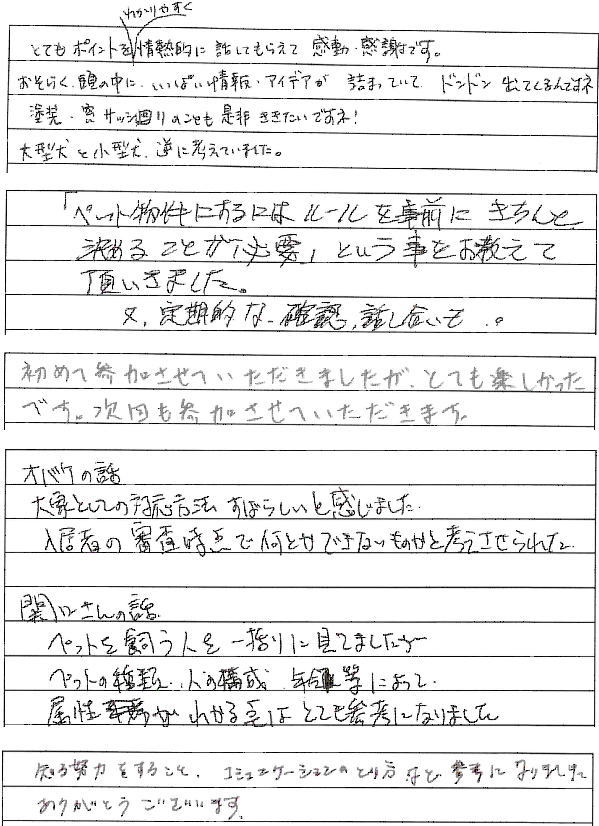 わかりやすく
とてもポイントを情熱的に話してもらえて感動・感謝です。
おそらく、頭の中に、いっぱい情報・アイデアが詰まっていて、ドンドン出てくるんですネ
塗装・窓サッシ廻りのことも是非ききたいですネ!
大型犬と小型犬、逆に考えていました。
「ペット物件にするにはルールを事前にきちんと
決めることが必要」という事をお教えて
頂いきました。
又、定期的な、確認、話し合いも。
初めて参加させていただきましたが、とても楽しかった
です。次回も参加させていただきます。
オバケの話
大家としての対応方法すばらしいと感じました。
入居者の審査時点で何とかできないものかと考えさせられた。
関口さんの話
ペットを飼う人を一括りに見てましたが
ペットの種類、人の構成、年齢等によって、
属性がわかる点はとても参考になりました
知る努力をすること、コミュニケーションのとり方など参考になりました
ありがとうございます。